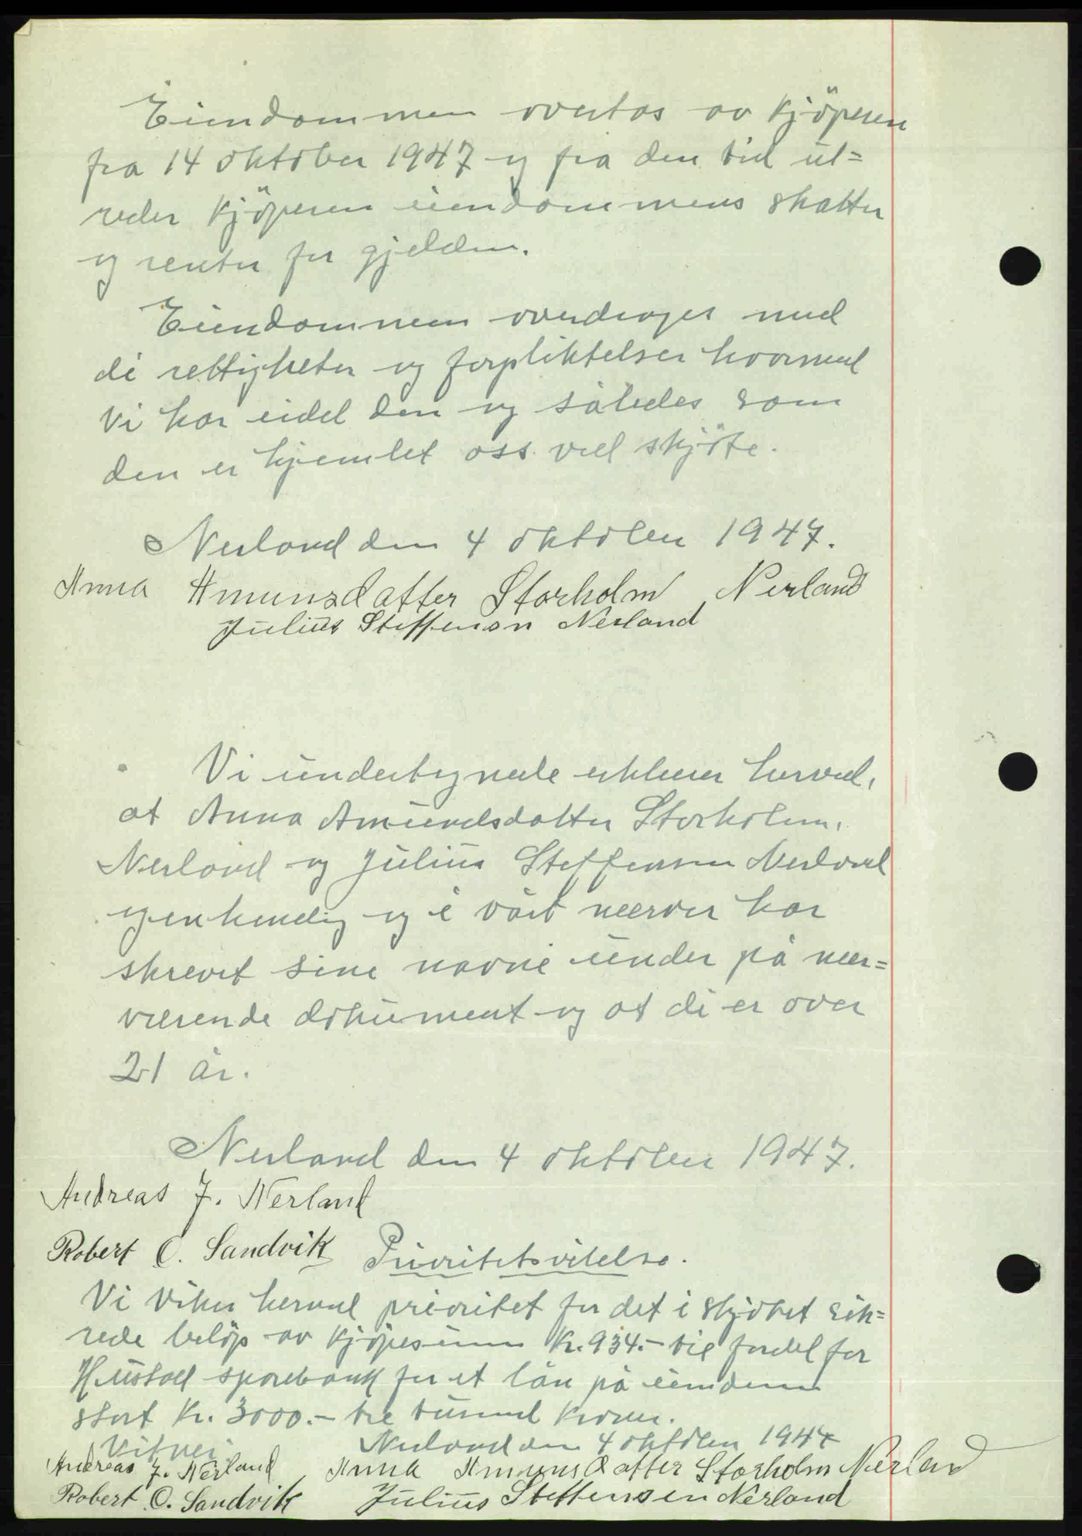 Eiendommen overtas av kjöperen
fra 14 oktober 1947 og fra den tid ut=
reder kjöperen eiendommens skatter
og renter for gjelden.
Eiendommen overdrages med
de rettigheter og forpliktelser hvormed
vi har eidet den og således som
den er hjemlet oss ved skjöte.
Nerland den 4 oktober 1947.
Anna Amunsdatter Storholm Nerland
Julius Steffenson Nerland
Vi undertegnede erklærer herved,
at Anna Amundsdatter Storholm,
Nerland og Julius Steffensen Nerland
egenhendig og i vårt nærvær har
skrevet sine navne under på nær=
værende dokument og at de er over
21 år.
Nerland den 4 oktober 1947.
Andreas J. Nerland
Robert O. Sandvik Prioritetsvikelse.
Vi viker herved prioritet for det i skjötet sik=
rede belöp av kjöpesum kr. 934.- til fordel for
Hustad sparebank for et lån på eiendommen
stort kr. 3000.- tre tusend kroner.
Vitner: Nerland den 4 oktober 1947
Andreas J. Nerland, Anna Amunsdatter Storholm Nerland
Robert O. Sandvik Julius Steffensen Nerland